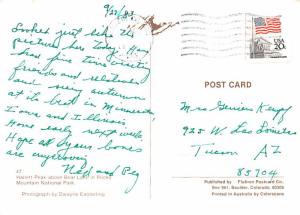 9/27/83
Looked just like the
picture here today. Have
had fine time visiting
friends and relatives
and many autumn
at its best in Minnesota,
Iowa and Illinois.
Home early next week.
Hope all your bones
are improving.
Ned and Peg
47
Hallett Peak above Bear Lake in Rocky
Mountain National Park.
Photograph by Dwayne Easterling
USA
20c
POST CARD
Mrs
925 W Las Lomitas
Tucson AZ
85704
Published by Flatiron Postcard Co.
Box 591, Boulder, Colorado, 80306
Printed in Australia by Colorscans